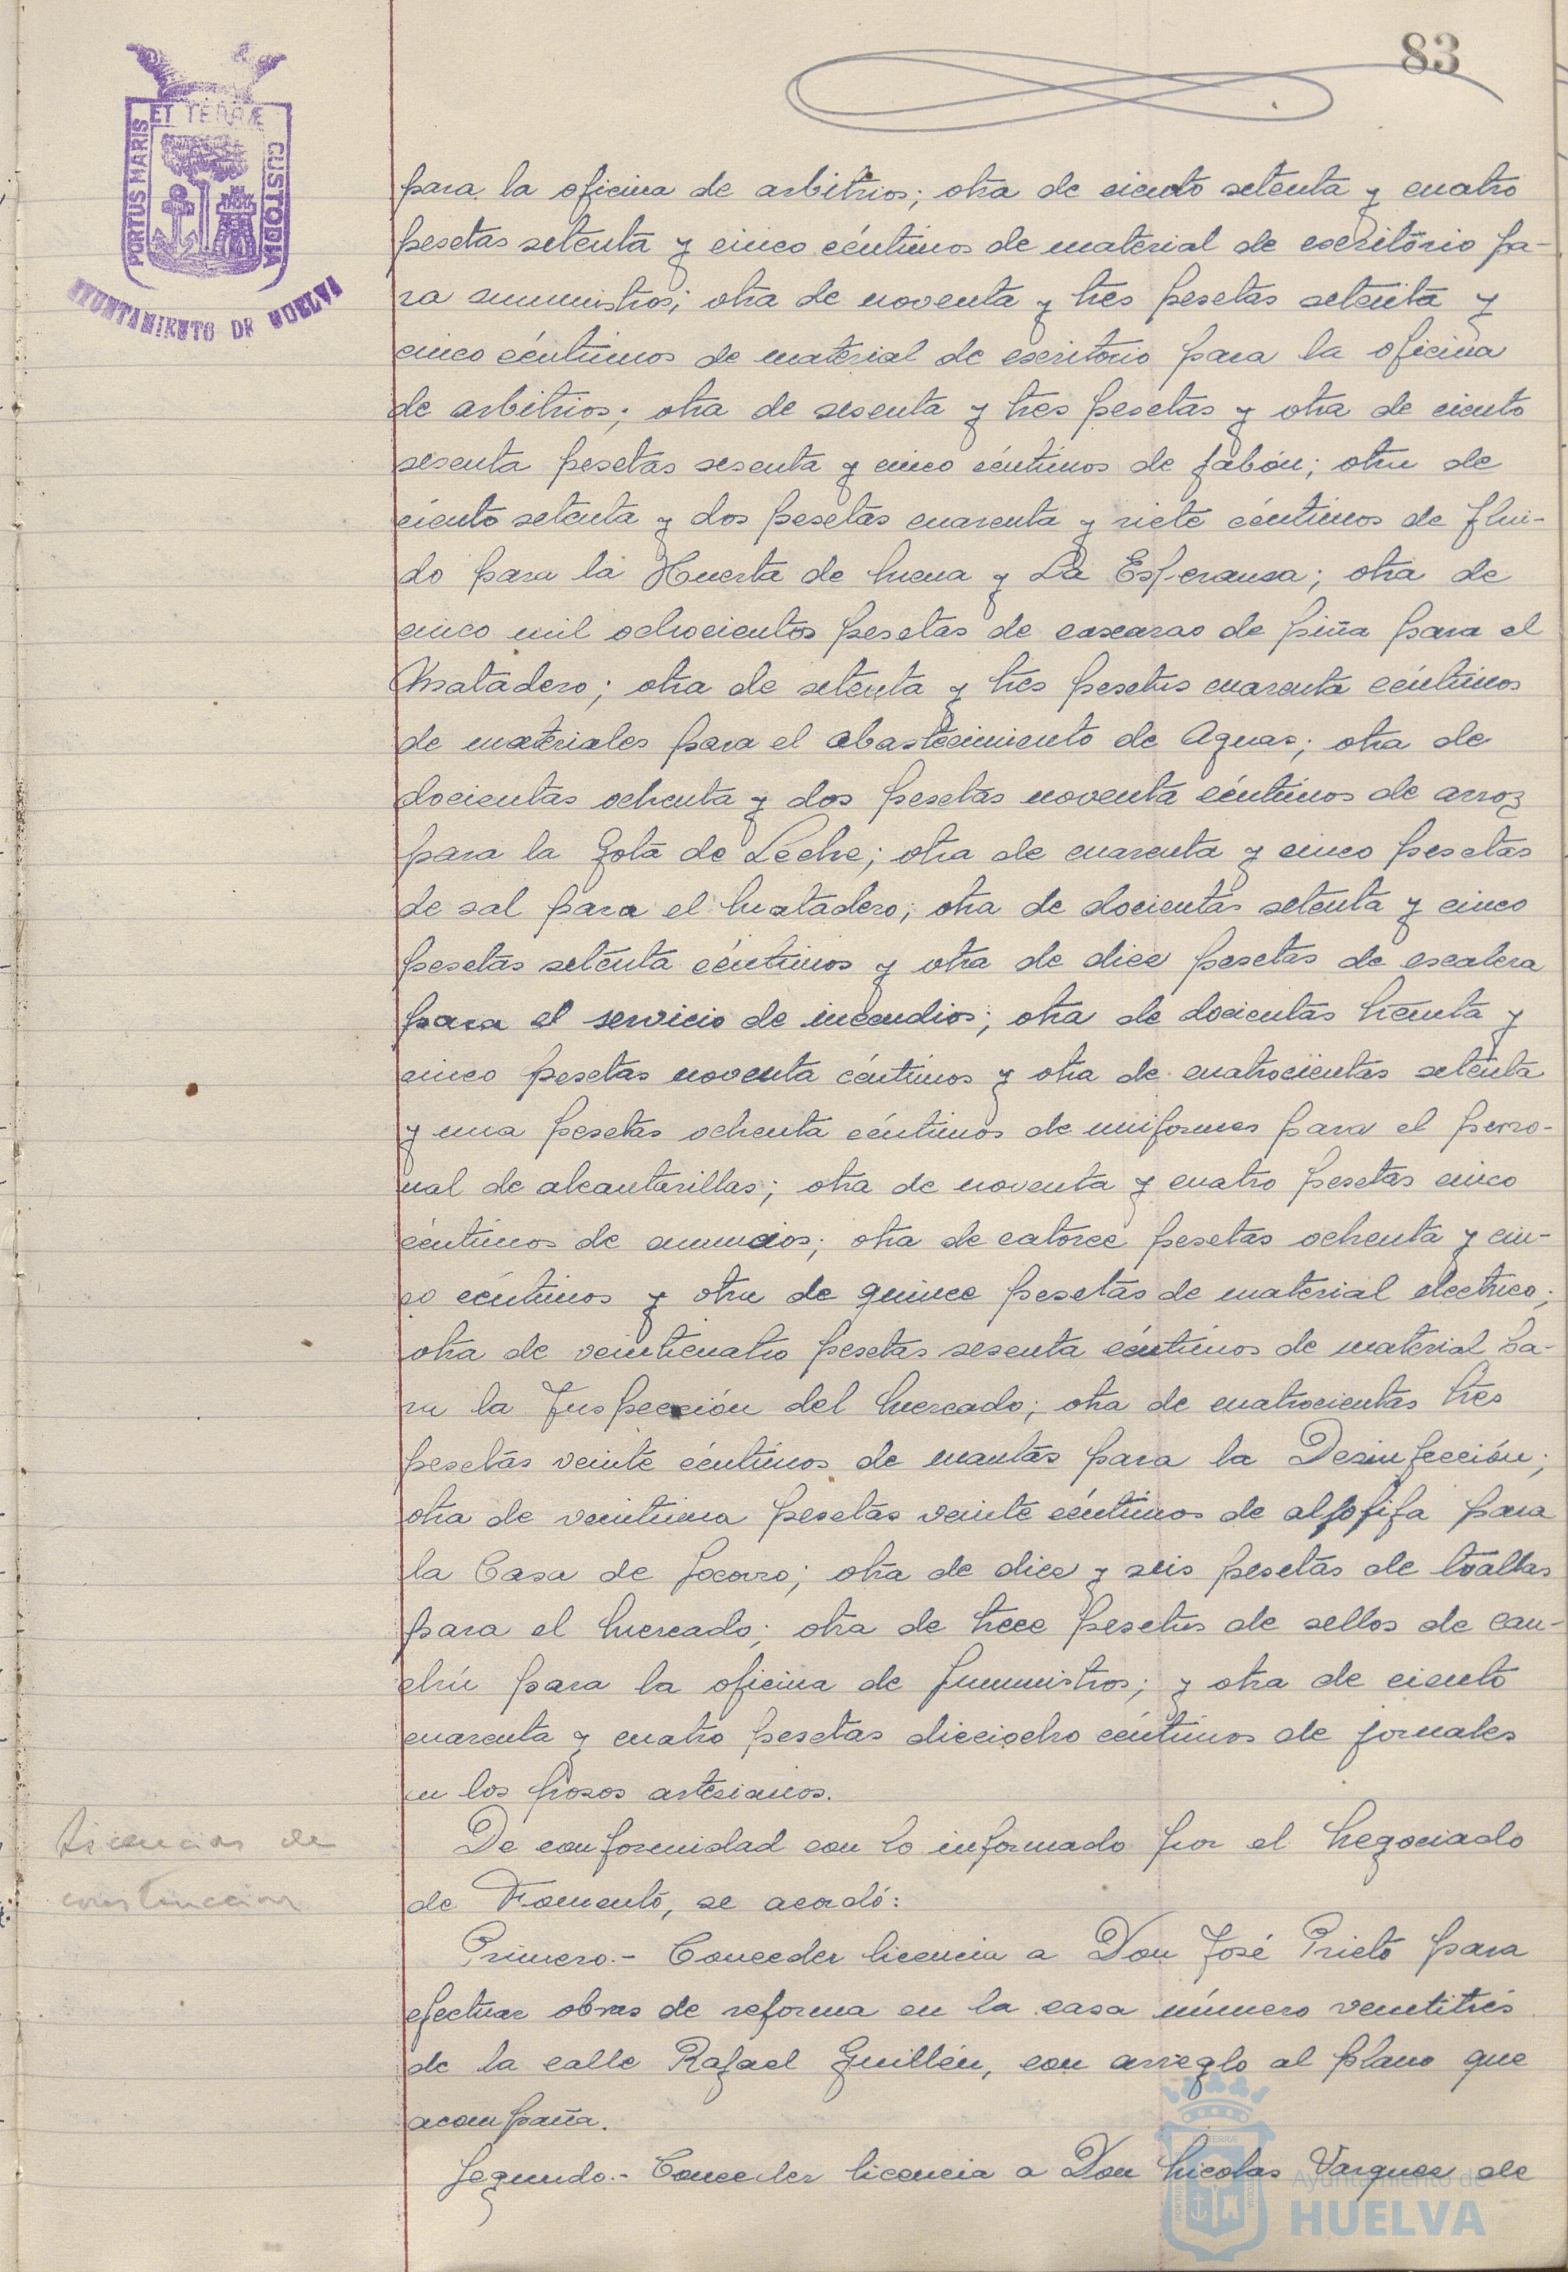 83
ET TERRÆ
PORTUS MARIS
CUSTODIA
AYUNTAMIENTO DE HUELVA
para la oficina de arbitrios; otra de ciento setenta y cuatro
pesetas setenta y cinco céntimos de material de escritorio pa-
ra suministros; otra de noventa y tres pesetas setenta y
cinco céntimos de material de escritorio para la oficina
de arbitrios; otra de sesenta y tres pesetas y otra de ciento
sesenta pesetas sesenta y cinco céntimos de jabón; otra de
ciento setenta y dos pesetas cuarenta y siete céntimos de flui-
do para la Huerta de Mena y La Esperanza; otra de
cinco mil ochocientos pesetas de cascaras de piña para el
Matadero; otra de setenta y tres pesetas cuarenta céntimos
de materiales para el abastecimiento de Aguas; otra de
docientas ochenta y dos pesetas noventa céntimos de arroz
para la Gota de Leche; otra de cuarenta y cinco pesetas
de sal para el Matadero; otra de docientas setenta y cinco
pesetas setenta céntimos y otra de diez pesetas de escalera
para el servicio de incendios; otra de docientas treinta y
cinco pesetas noventa céntimos y otra de cuatrocientas setenta
y una pesetas ochenta céntimos de uniformes para el perso-
nal de alcantarillas; otra de noventa y cuatro pesetas cinco
céntimos de anuncios; otra de catorce pesetas ochenta y cin-
co céntimos y otra de quince pesetas de material electrico;
otra de veinticuatro pesetas sesenta céntimos de material pa-
ra la Inspección del Mercado; otra de cuatrocientas tres
pesetas veinte céntimos de mantas para la Desinfección;
otra de veintiuna pesetas veinte céntimos de aljofifa para
la Casa de Socorro; otra de diez y seis pesetas de toallas
para el Mercado; otra de trece pesetas de sellos de cau-
chú para la oficina de Suministros; y otra de ciento
cuarenta y cuatro pesetas dieciocho céntimos de jornales
en los posos artesianos.
Licencias de
construccion
De conformidad con lo informado por el Negociado
de Fomento, se acordó:
Primero.- Conceder licencia a Don José Prieto para
efectuar obras de reforma en la casa número ventitrés
de la calle Rafael Guillén, con arreglo al plano que
acompaña.
Segundo.- Conceder licencia a Don Nicolas Vazquez de
Ayuntamiento de
HUELVA